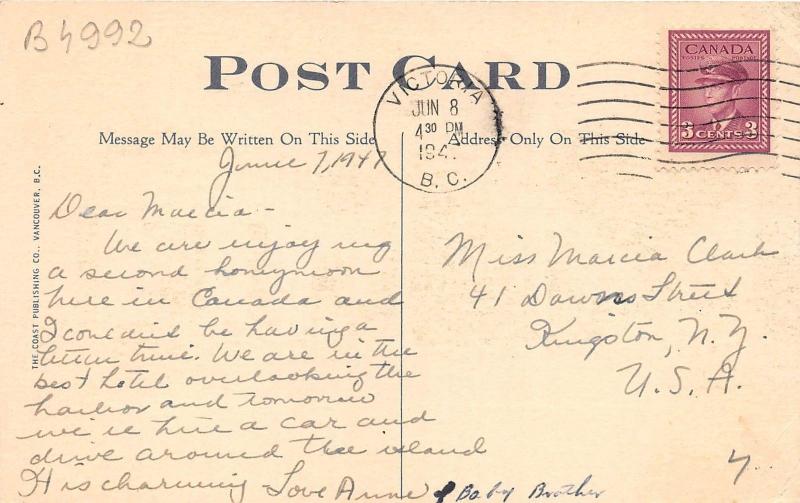 B4992
POST CARD
VICTORIA
JUN 8
4 30 PM
194
B.C.
CANADA
POSTES POSTAGE
3 CENTS 3
Message May Be Written On This Side
Address Only On This Side
THE COAST PUBLISHING CO., VANCOUVER, B.C.
June 7, 1947
Dear Marcia -
We are enjoying
a second honeymoon
here in Canada and
I couldn't be having a
better time. We are in the
best hotel overlooking the
harbor and tomorrow
we'll hire a car and
drive around the island
It is charming - Love Anne & Baby Brother
Miss Marcia Clark
41 Downs Street
Kingston, N.Y.
U.S.A.